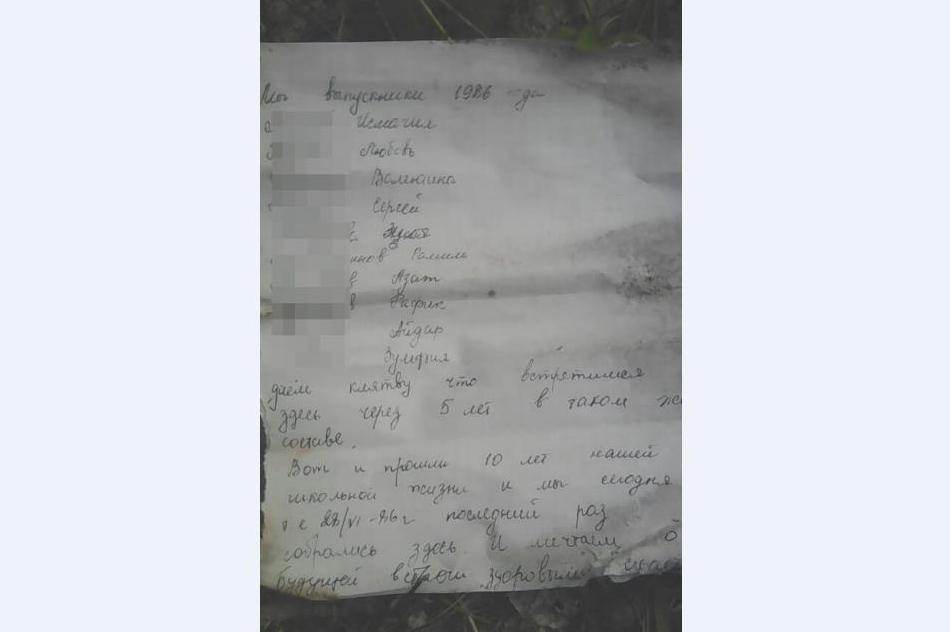 Мы выпускники 1986 года
Исмагил
Любовь
Валентина
Сергей
инов Рамиль
в Азат
в Рафик
Айдар
Зульфия
даём клятву что встретимся
здесь через 5 лет в таком же
составе.
Вот и прошли 10 лет нашей
школьной жизни и мы сегодня
т е 28/VI-86г последний раз
собрались здесь. И мечтаем о
будущей встречи здоровыми